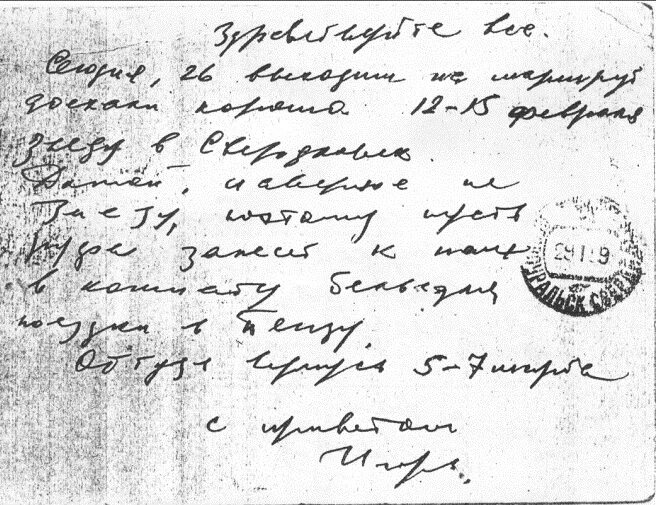 Здравствуйте все.
Сегодня, 26 выходим на маршрут
доехали хорошо 12-15 февраля
заеду в Свердловск.
Домой, наверное не
заеду, поэтому пусть
Руфа занесет к нам
в комнату белье для
поездки в Пензу.
Оттуда вернусь 5-7 марта
с приветом
Игорь.
29 1
УРАЛЬСК. СВЕРД